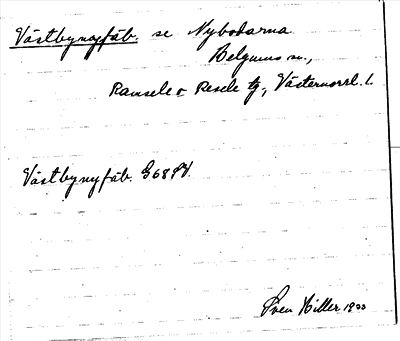 Västbynyfäb. se Nybodarna
Helgums sn.,
Ramsele o Resele tg., Västernorrl. l.
Västbynyfäb. G68PV.
Sven Hiller 1933